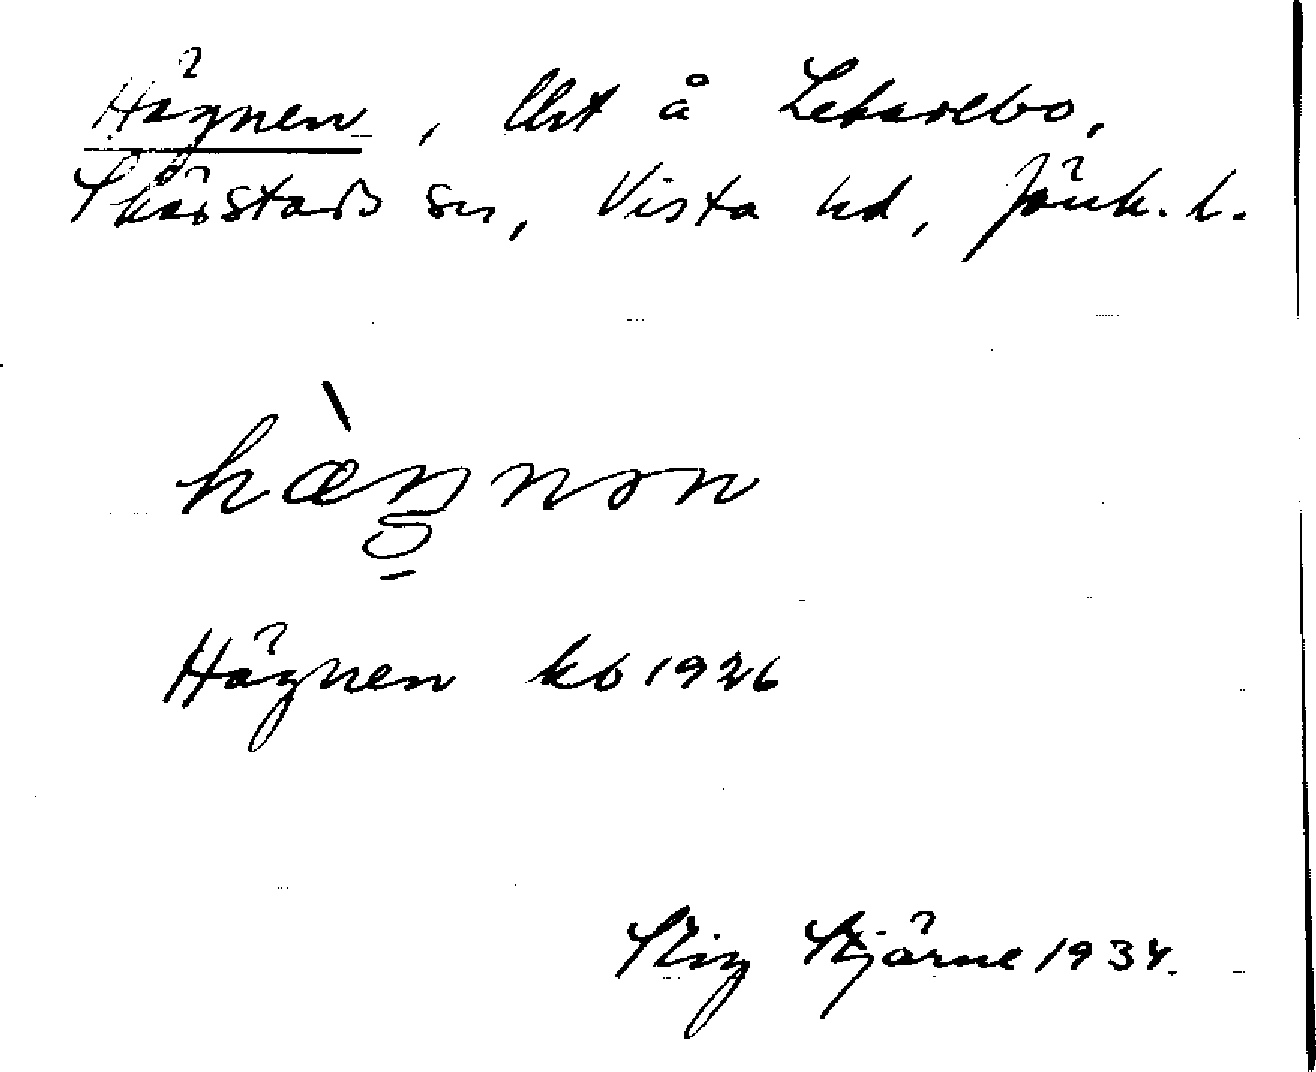 Hägnen, lht å Lekarebo,
Skärstads sn, Vista hd, Jönk. l.
hæ̀ŋnən
Hägnen kb 1926
Stig Stjärne 1934.